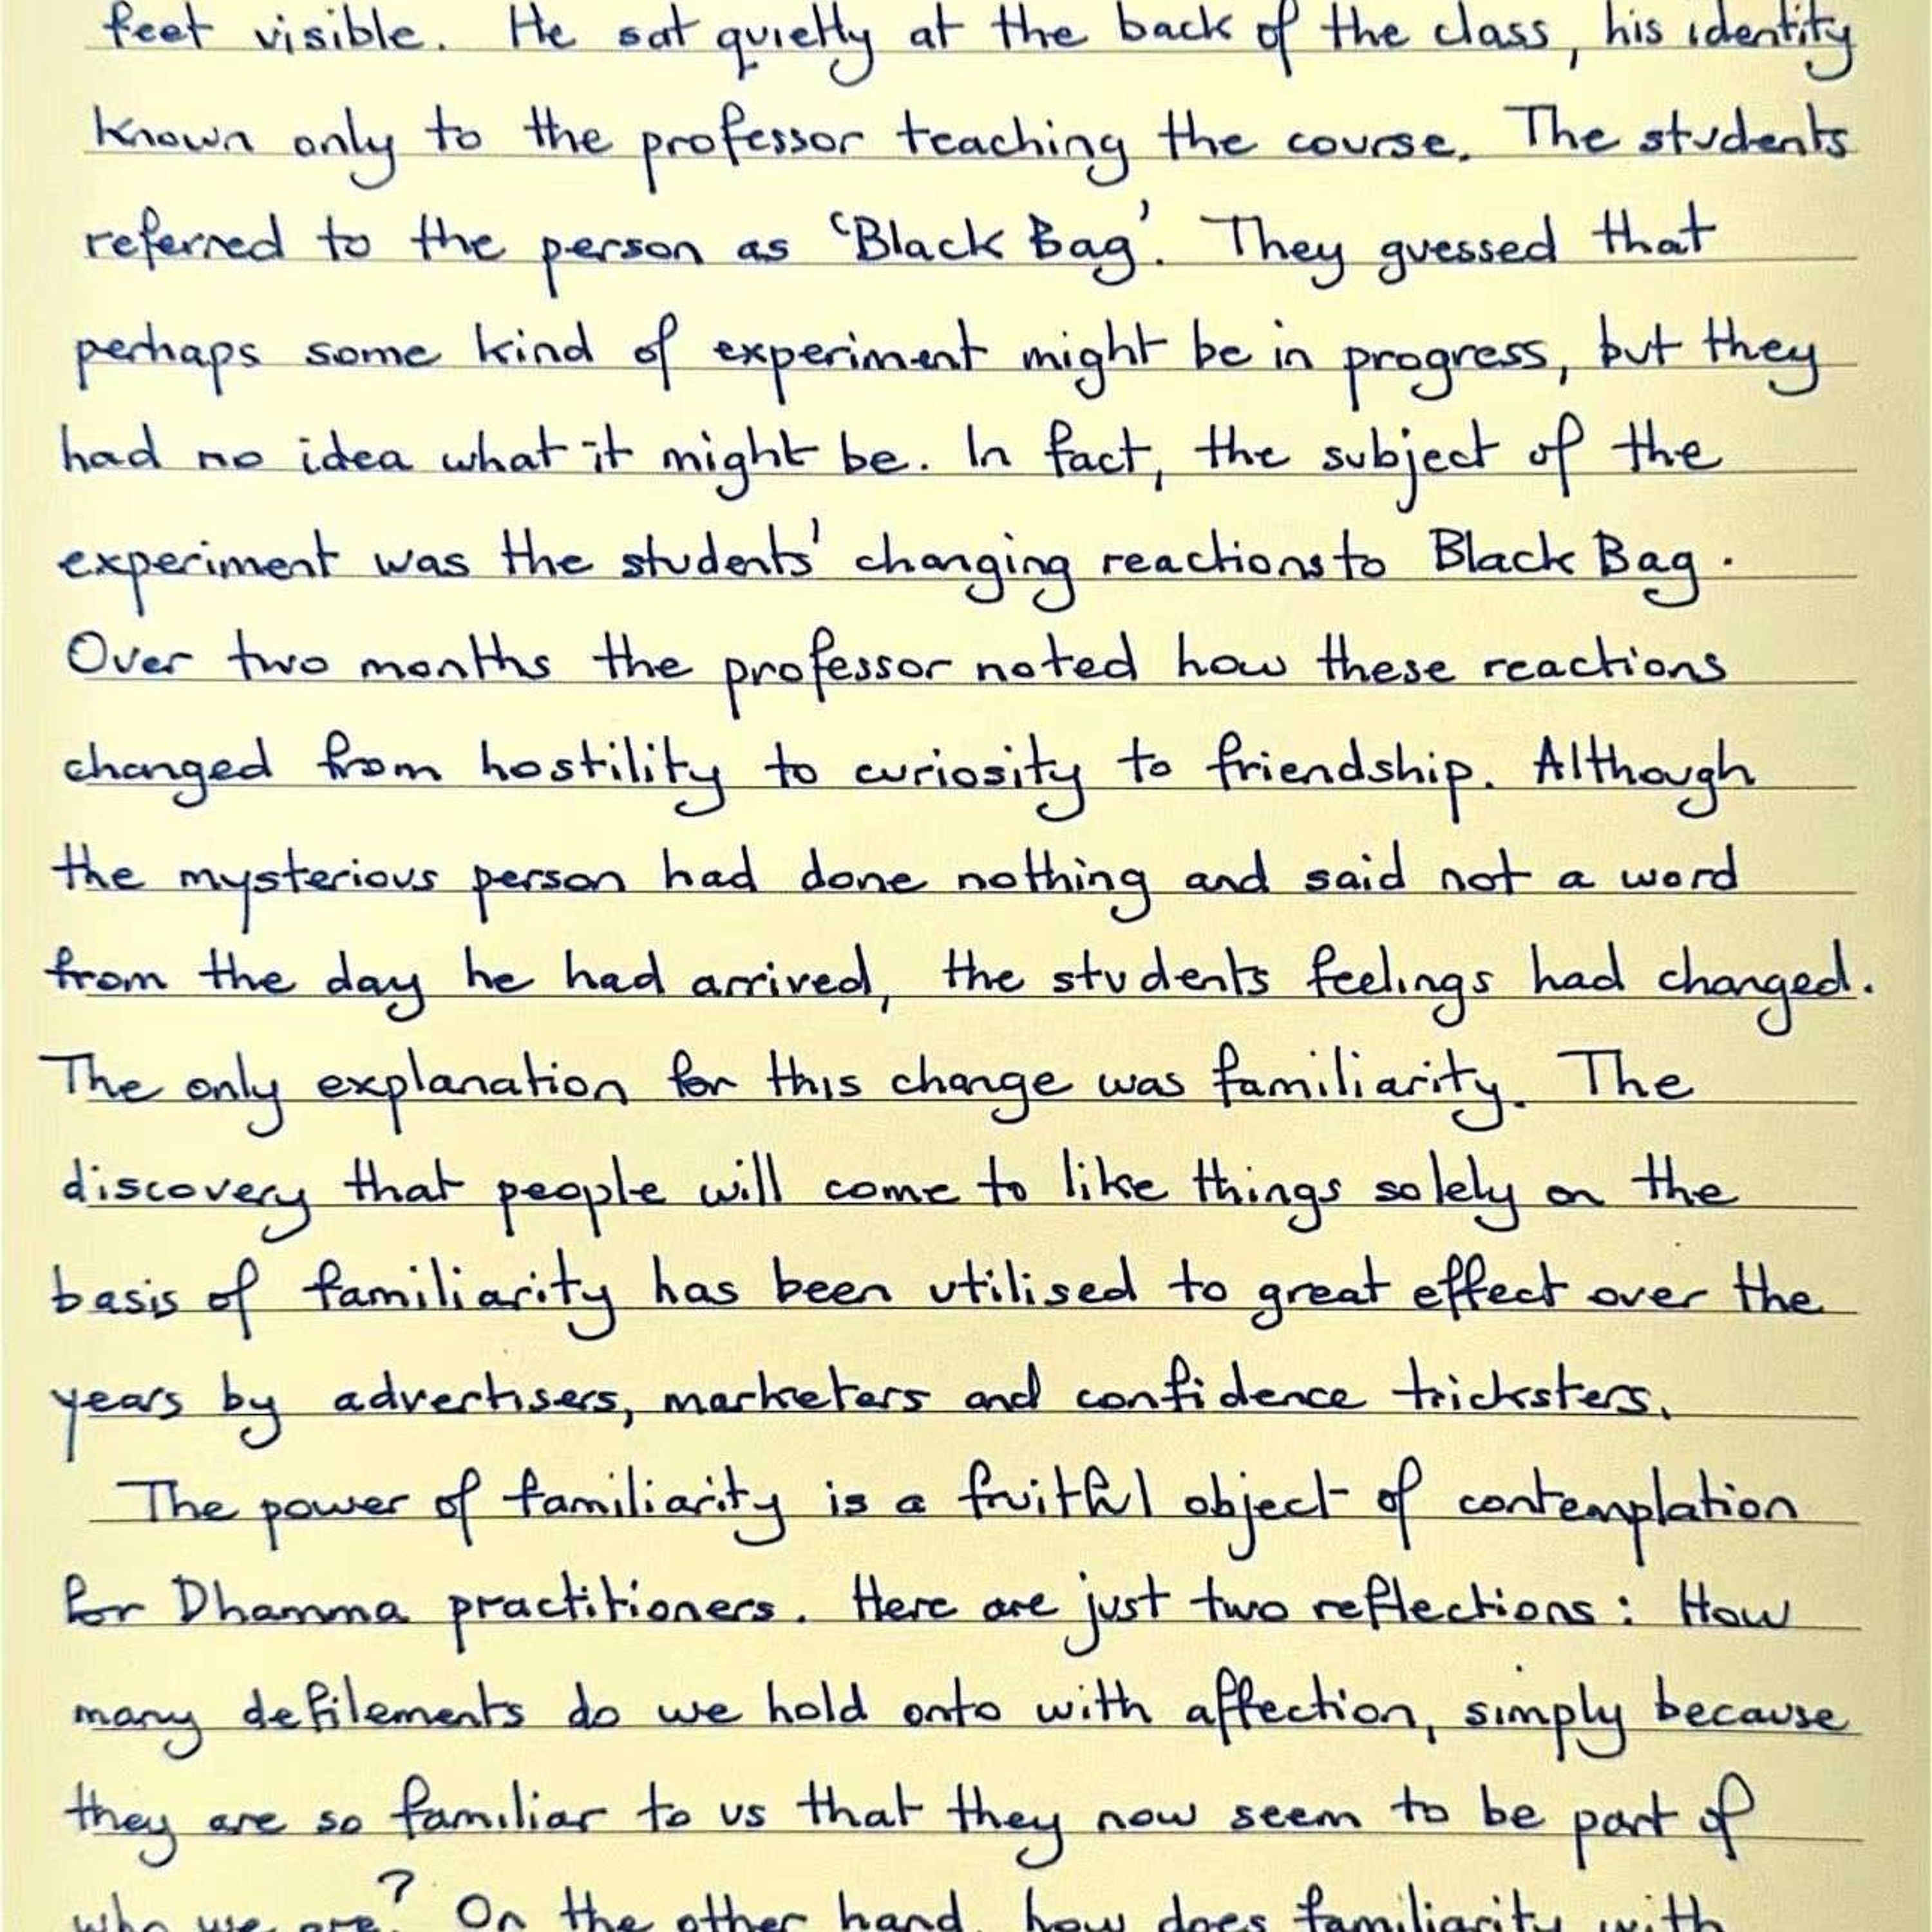 feet visible. He sat quietly at the back of the class, his identity
known only to the professor teaching the course. The students
referred to the person as 'Black Bag'. They guessed that
perhaps some kind of experiment might be in progress, but they
had no idea what it might be. In fact, the subject of the
experiment was the students' changing reactions to Black Bag.
Over two months the professor noted how these reactions
changed from hostility to curiosity to friendship. Although
the mysterious person had done nothing and said not a word
from the day he had arrived, the students feelings had changed.
The only explanation for this change was familiarity. The
discovery that people will come to like things solely on the
basis of familiarity has been utilised to great effect over the
years by advertisers, marketers and confidence tricksters.
The power of familiarity is a fruitful object of contemplation
for Dhamma practitioners. Here are just two reflections: How
many defilements do we hold onto with affection, simply because
they are so familiar to us that they now seem to be part of
who we are? On the other hand, how does familiarity with